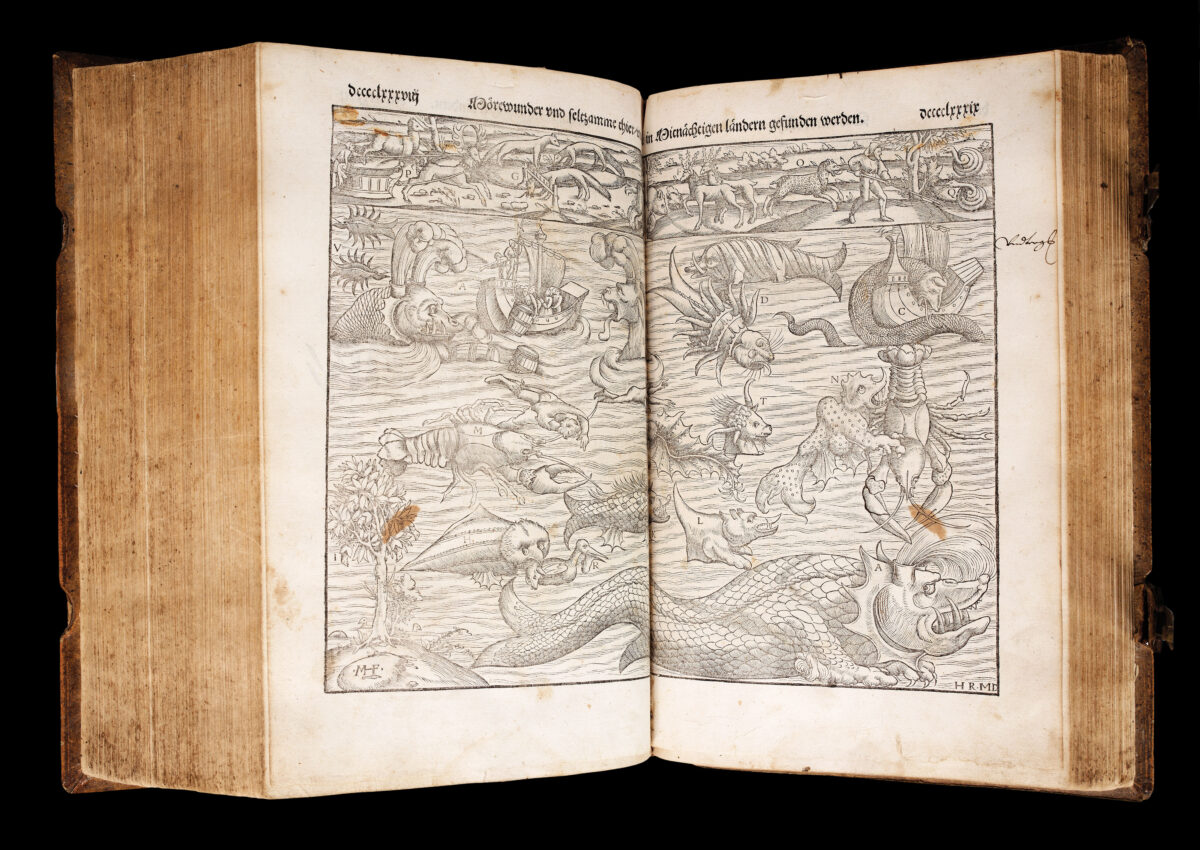 dcccclxxxviij
Mörewunder vnd seltzamme thier/
in Mitnächtigen ländern gefunden werden.
dcccclxxxix
P
G
O
V
A
D
C
N
T
M
L
I
R
A
H R·MD